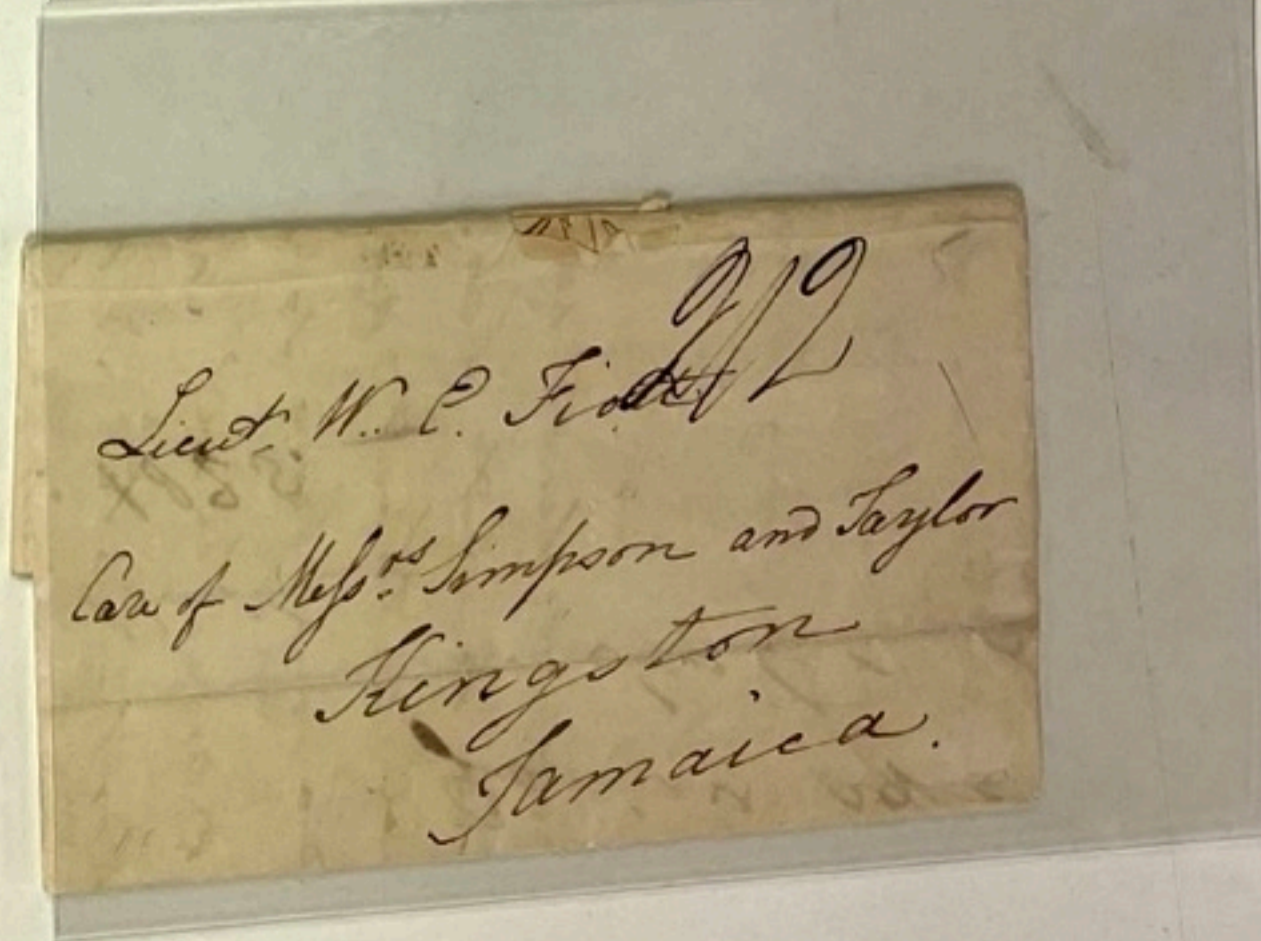 2/2
Lieut. W. C.
Care of Messrs. Simpson and Taylor
Kingston
Jamaica.